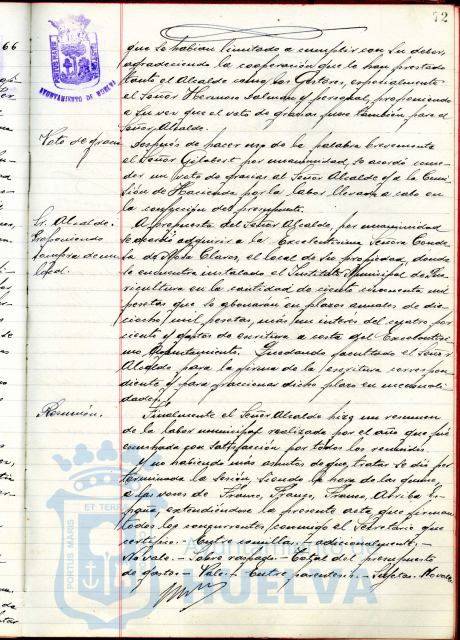 72
que se habían limitado a cumplir con su deber,
agradeciendo la cooperación que le han prestado
tanto el Alcalde como los Gestores, especialmente
el Señor Hermoso y personal, proponiendo
a su vez que el voto de gracias fuese también para el
Señor Alcalde.
Voto de gracias
Después de hacer uso de la palabra brevemente
el Señor Gilabert por unanimidad, se acordó conce-
der un voto de gracias al Señor Alcalde y a la Comi-
sión de Hacienda por la labor llevada a cabo en
la confección del presupuesto.
Sr. Alcalde:
Proponiendo
compra de un
local.
A propuesta del Señor Alcalde, por unanimidad
se acordó adquirir a la Excelentísima Señora Conde-
sa de Mora Claros, el local de su propiedad, donde
se encuentra instalado el Instituto Municipal de Pue-
ricultura en la cantidad de ciento cincuenta mil
pesetas que se abonarán en plazos anuales de die-
ciocho mil pesetas, más un interés del cuatro por
ciento y gastos de escritura a costa del Excelentísi-
mo Ayuntamiento. Quedando facultado el Señor
Alcalde para la firma de la escritura correspon-
diente y para fraccionar dicho plazo en mensuali-
dades.
Resumen.
Finalmente el Señor Alcalde hizo un resumen
de la labor municipal realizada por el año que fué
escuchada con satisfacción por todos los reunidos.
Y no habiendo más asuntos de que tratar se dió por
terminada la sesión, siendo la hora de las quince
a las voces de Franco, Franco, Franco, Arriba Es-
paña, extendiéndose la presente acta, que firman
todos los concurrentes conmigo el Secretario que
certifico. Entre comillas - adicionalmente. -
No vale. - Sobre raspado - Total del presupuesto
de gastos. - Vale. - Entre parentesis. - No vale.
Ayuntamiento de
HUELVA
PORTUS MARIS ET TERRAE